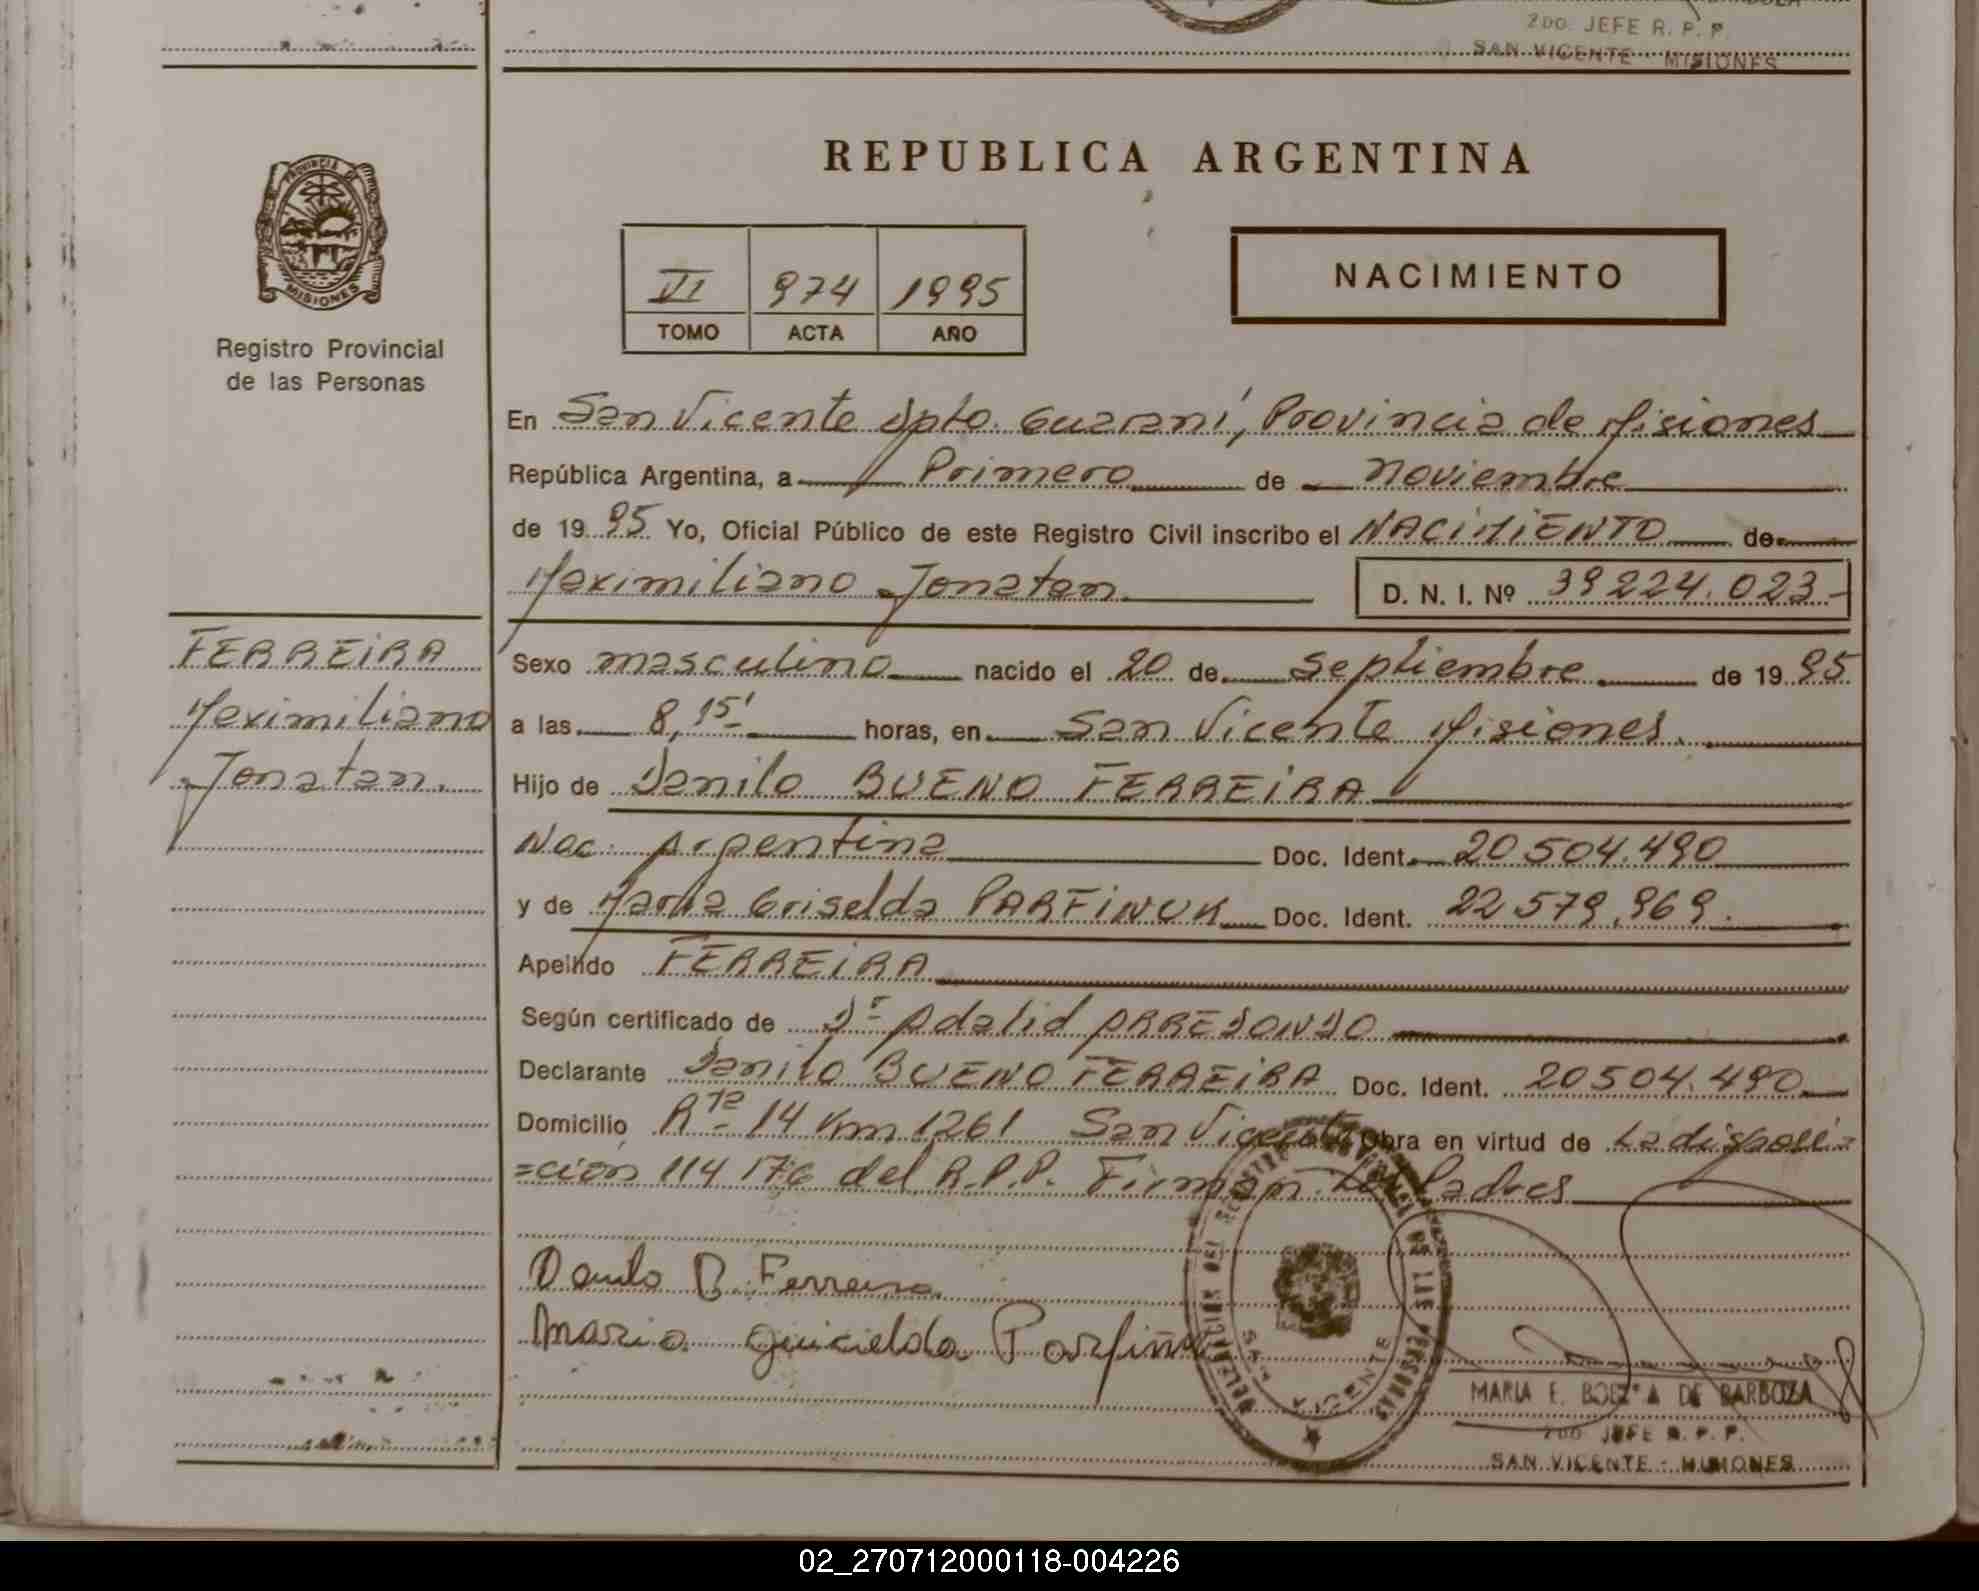 2DO. JEFE R. P. P.
SAN VICENTE - MISIONES
PROVINCIA DE
MISIONES
Registro Provincial
de las Personas
REPUBLICA ARGENTINA
VI 974 1995
TOMO ACTA AÑO
NACIMIENTO
En San Vicente Dpto. Guaraní, Provincia de Misiones
República Argentina, a Primero de Noviembre
de 19 95 Yo, Oficial Público de este Registro Civil inscribo el NACIMIENTO de
Maximiliano Jonatan D. N. I. Nº 39224.023-
FERREIRA
Maximiliano
Jonatan.
Sexo masculino nacido el 20 de septiembre de 19 95
a las 8,15' horas, en San Vicente Misiones.
Hijo de Danilo BUENO FERREIRA
Nac. Argentina Doc. Ident. 20504.490
y de Maria Griselda PARFINUK Doc. Ident. 22579.969.
Apellido FERREIRA
Según certificado de Dr Adalid ARREDONDO
Declarante Danilo BUENO FERREIRA Doc. Ident. 20504.490
Domicilio Rta 14 Km 1261 San Vicente Obra en virtud de La disposi=
=ción 114/76 del R.P.P. Firman Los Padres
Danilo B. Ferreira
Maria Guicielda Parfinu
DELEGACION DEL REGISTRO PROVINCIAL DE LAS PERSONAS
SAN VICENTE
MARIA E. DE BARBOZA
2DO JEFE R. P. P.
SAN VICENTE - MISIONES
02_270712000118-004226